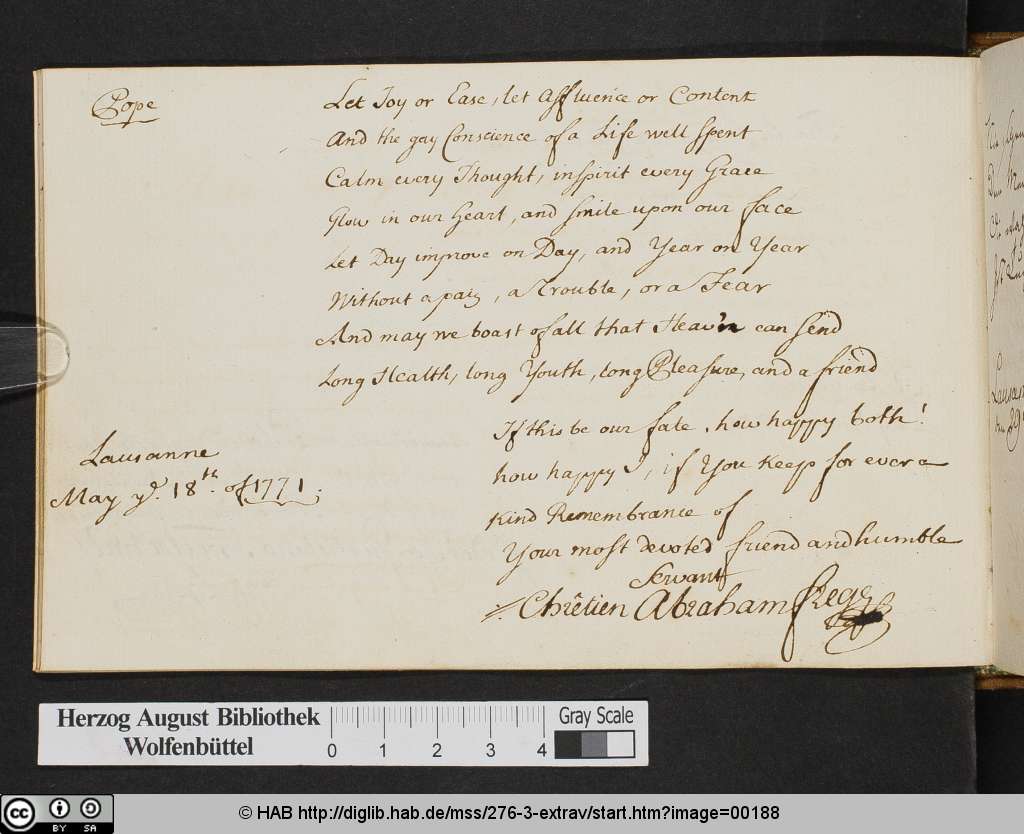 Pope
Let Joy or Ease, let Affluence or Content
And the gay Conscience of a Life well spent
Calm every Thought, inspirit every Grace
Glow in our heart, and smile upon our face
Let Day improve on Day, and Year on Year
Without a pain, a Trouble, or a Fear
And may we boast of all that Heav'n can send
Long Health, long Youth, long Pleasure, and a friend
If this be our fate, how happy both!
how happy I, if You keep for ever a
Kind Remembrance of
Your most devoted friend and humble
Servant
Chrêtien Abraham Frege
Lausanne
May ye. 18th. of 1771.
Herzog August Bibliothek
Wolfenbüttel
0 1 2 3 4
Gray Scale
cc BY SA
© HAB http://diglib.hab.de/mss/276-3-extrav/start.htm?image=00188